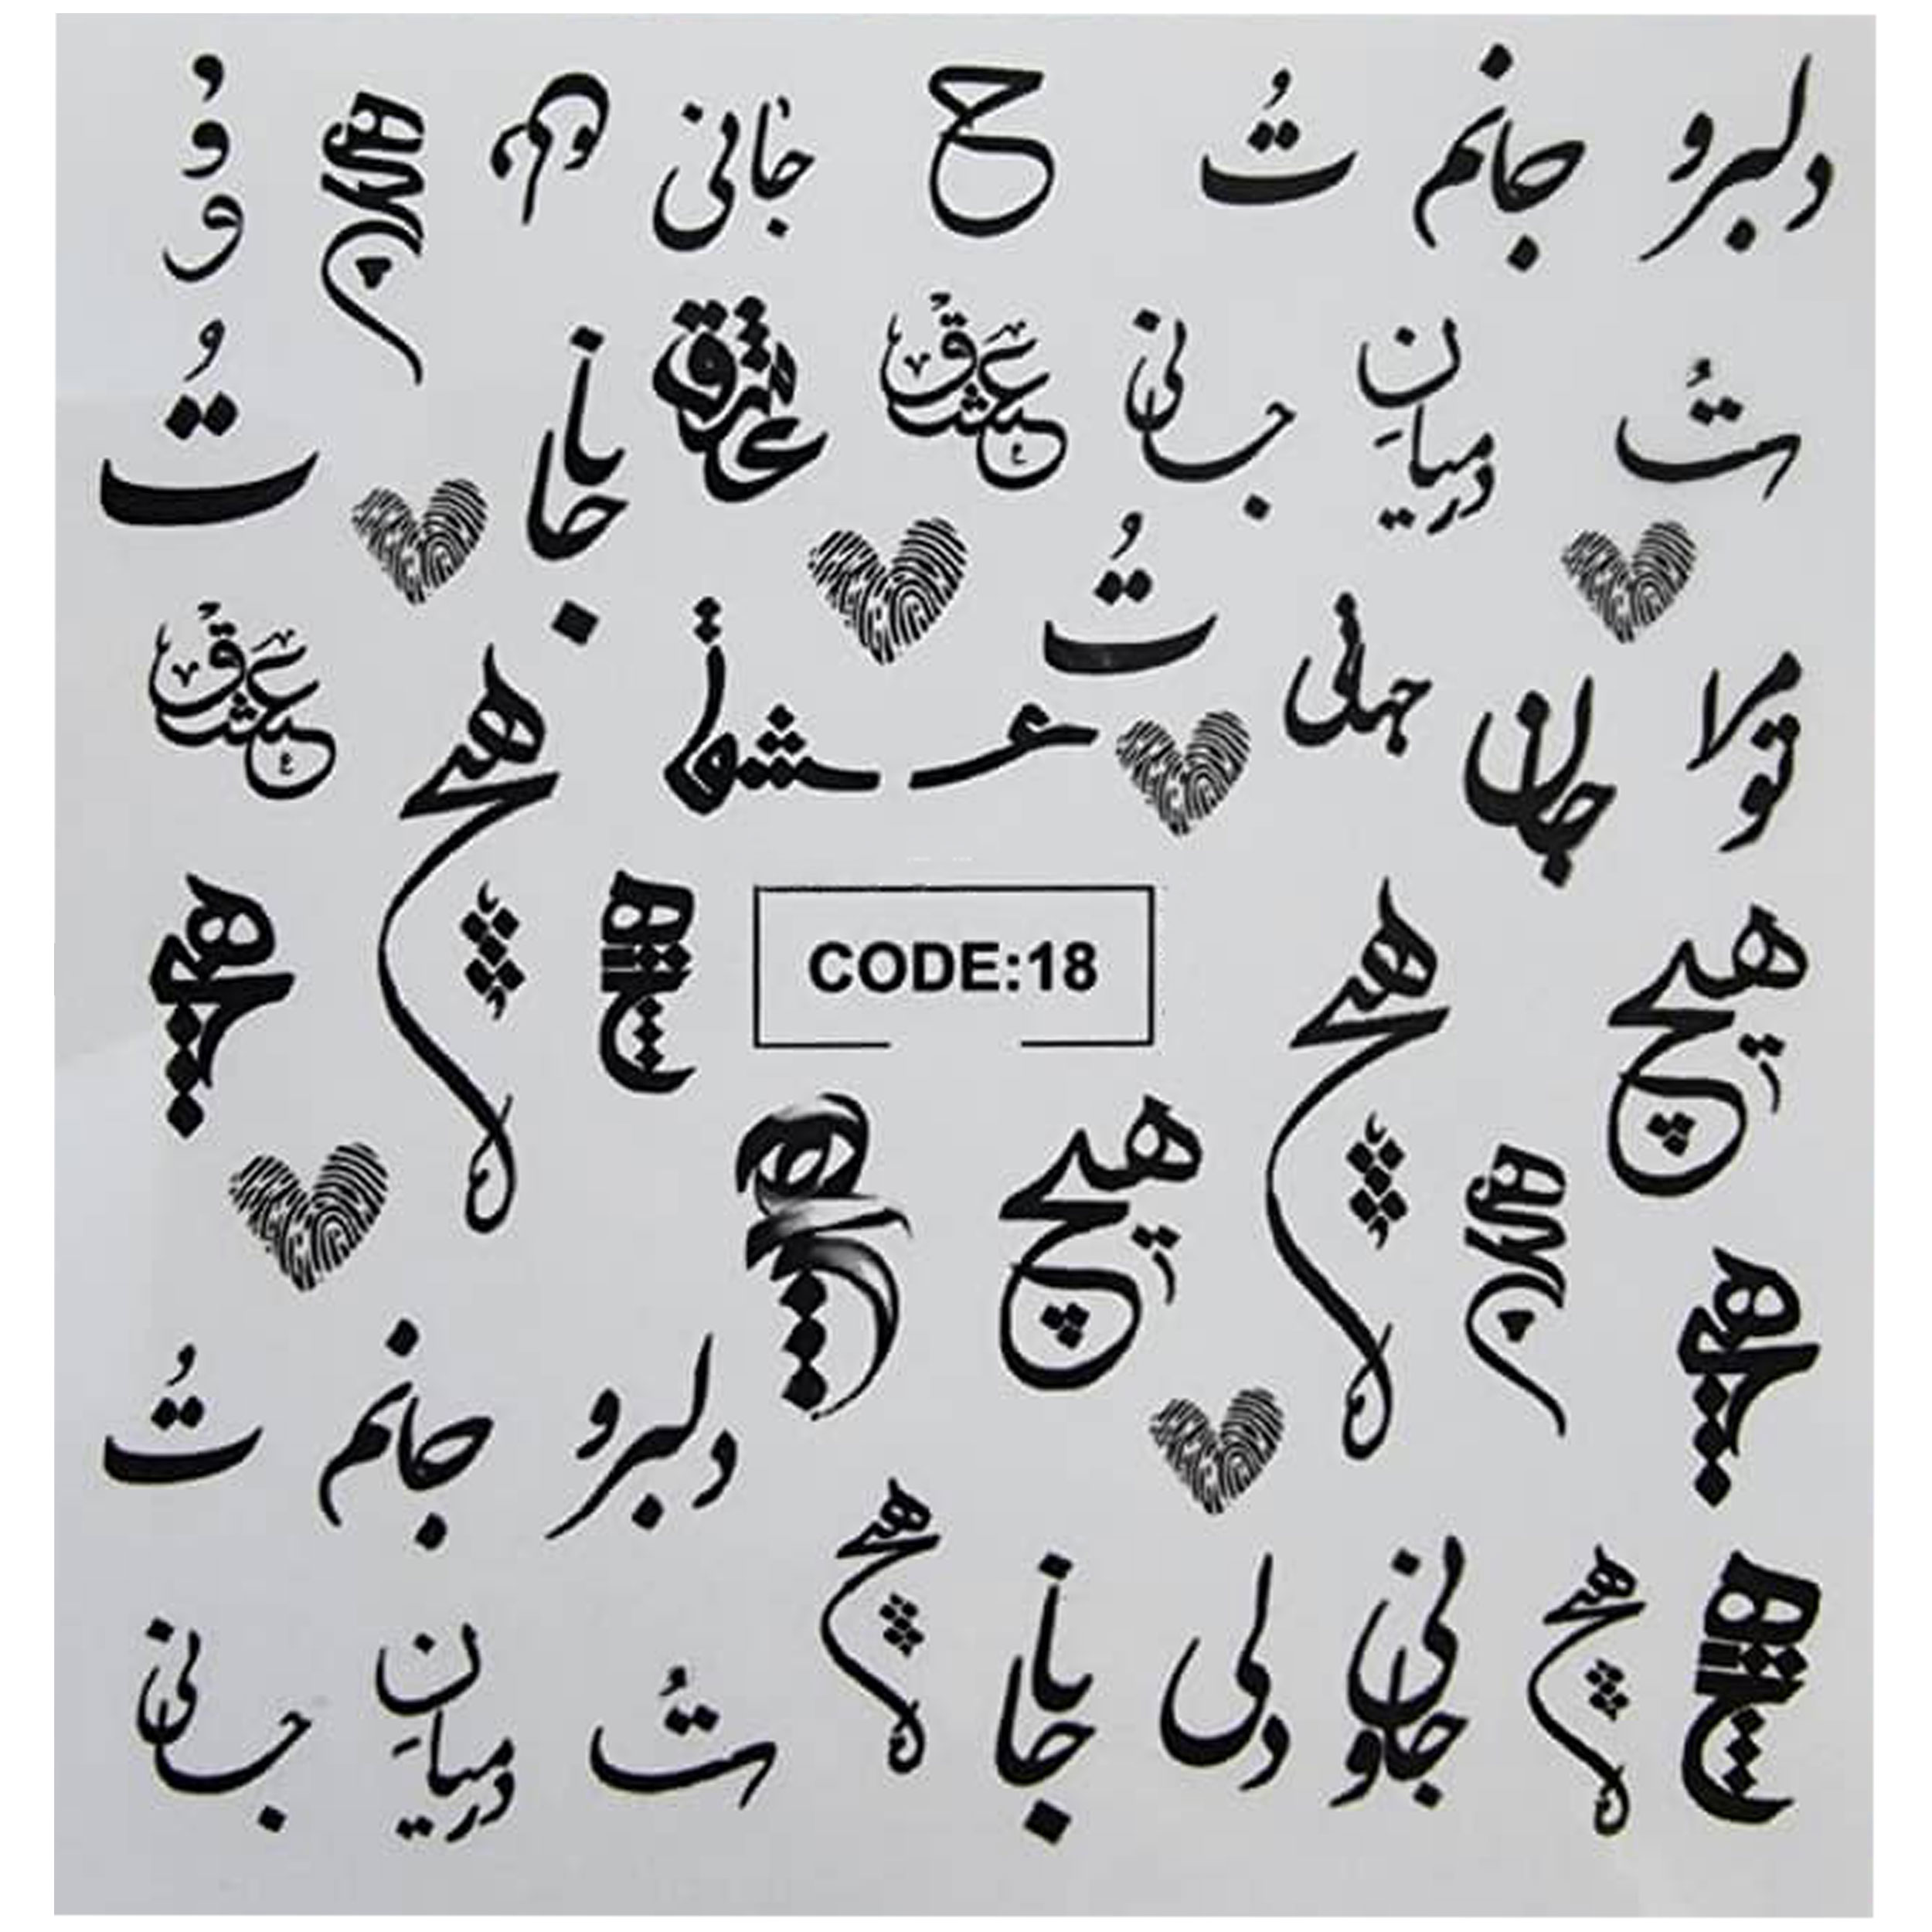 دلبر و جانم تُ ح جانی
تُ درمیانِ جانی عشق عشق جانا تُ
مرا تو جان جهانی تُ عشق هیچ عشق
هیچ هیچ CODE:18 هیچ هیچ
هیچ هیچ
دلبر و جانم تُ
هیچ جانی و دلی جانا هیچ تُ درمیانِ جانی